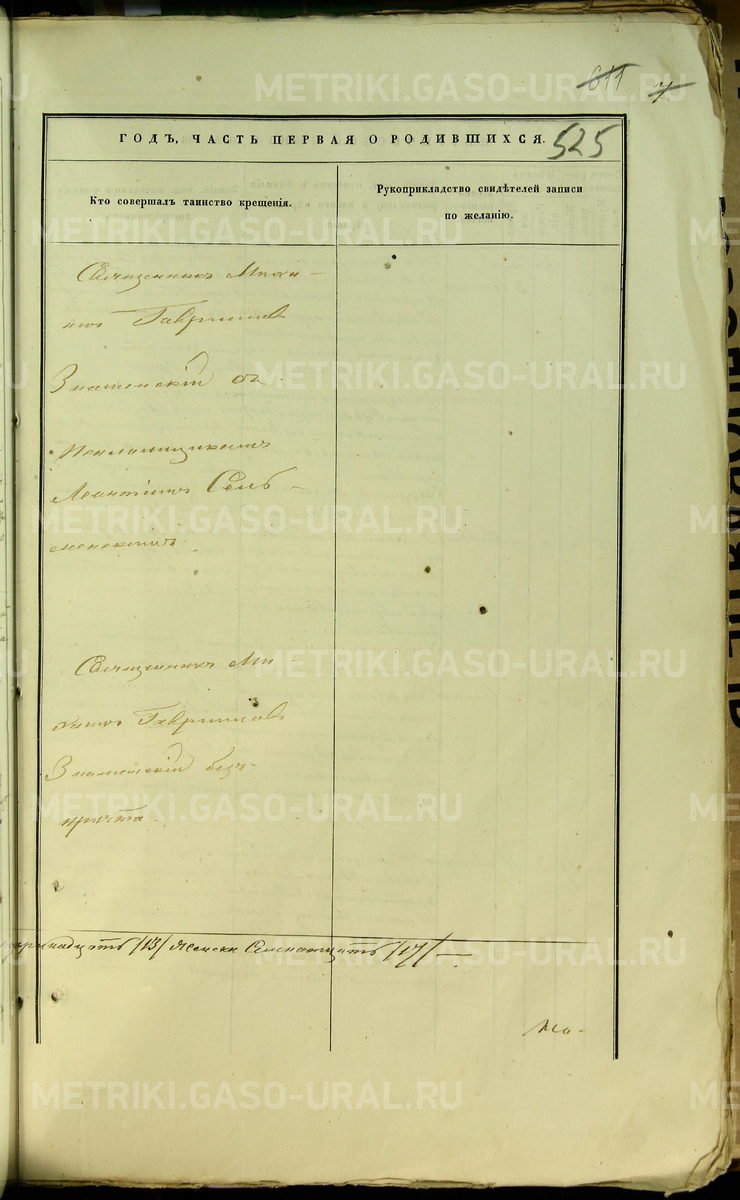 611 7
525
ГОДЪ, ЧАСТЬ ПЕРВАЯ О РОДИВШИХСЯ.
Кто совершалъ таинство крещенія.
Рукоприкладство свидѣтелей записи
по желанію.
Священникъ Миха-
илъ Гавриловъ
Знаменскій съ
Леонтіемъ Сель-
менскимъ
Священникъ Ми-
хаилъ Гавриловъ
Знаменскій безъ
причта
тринадцать /13/ женска Семнатцать /17/ —
METRIKI.GASO-URAL.RU